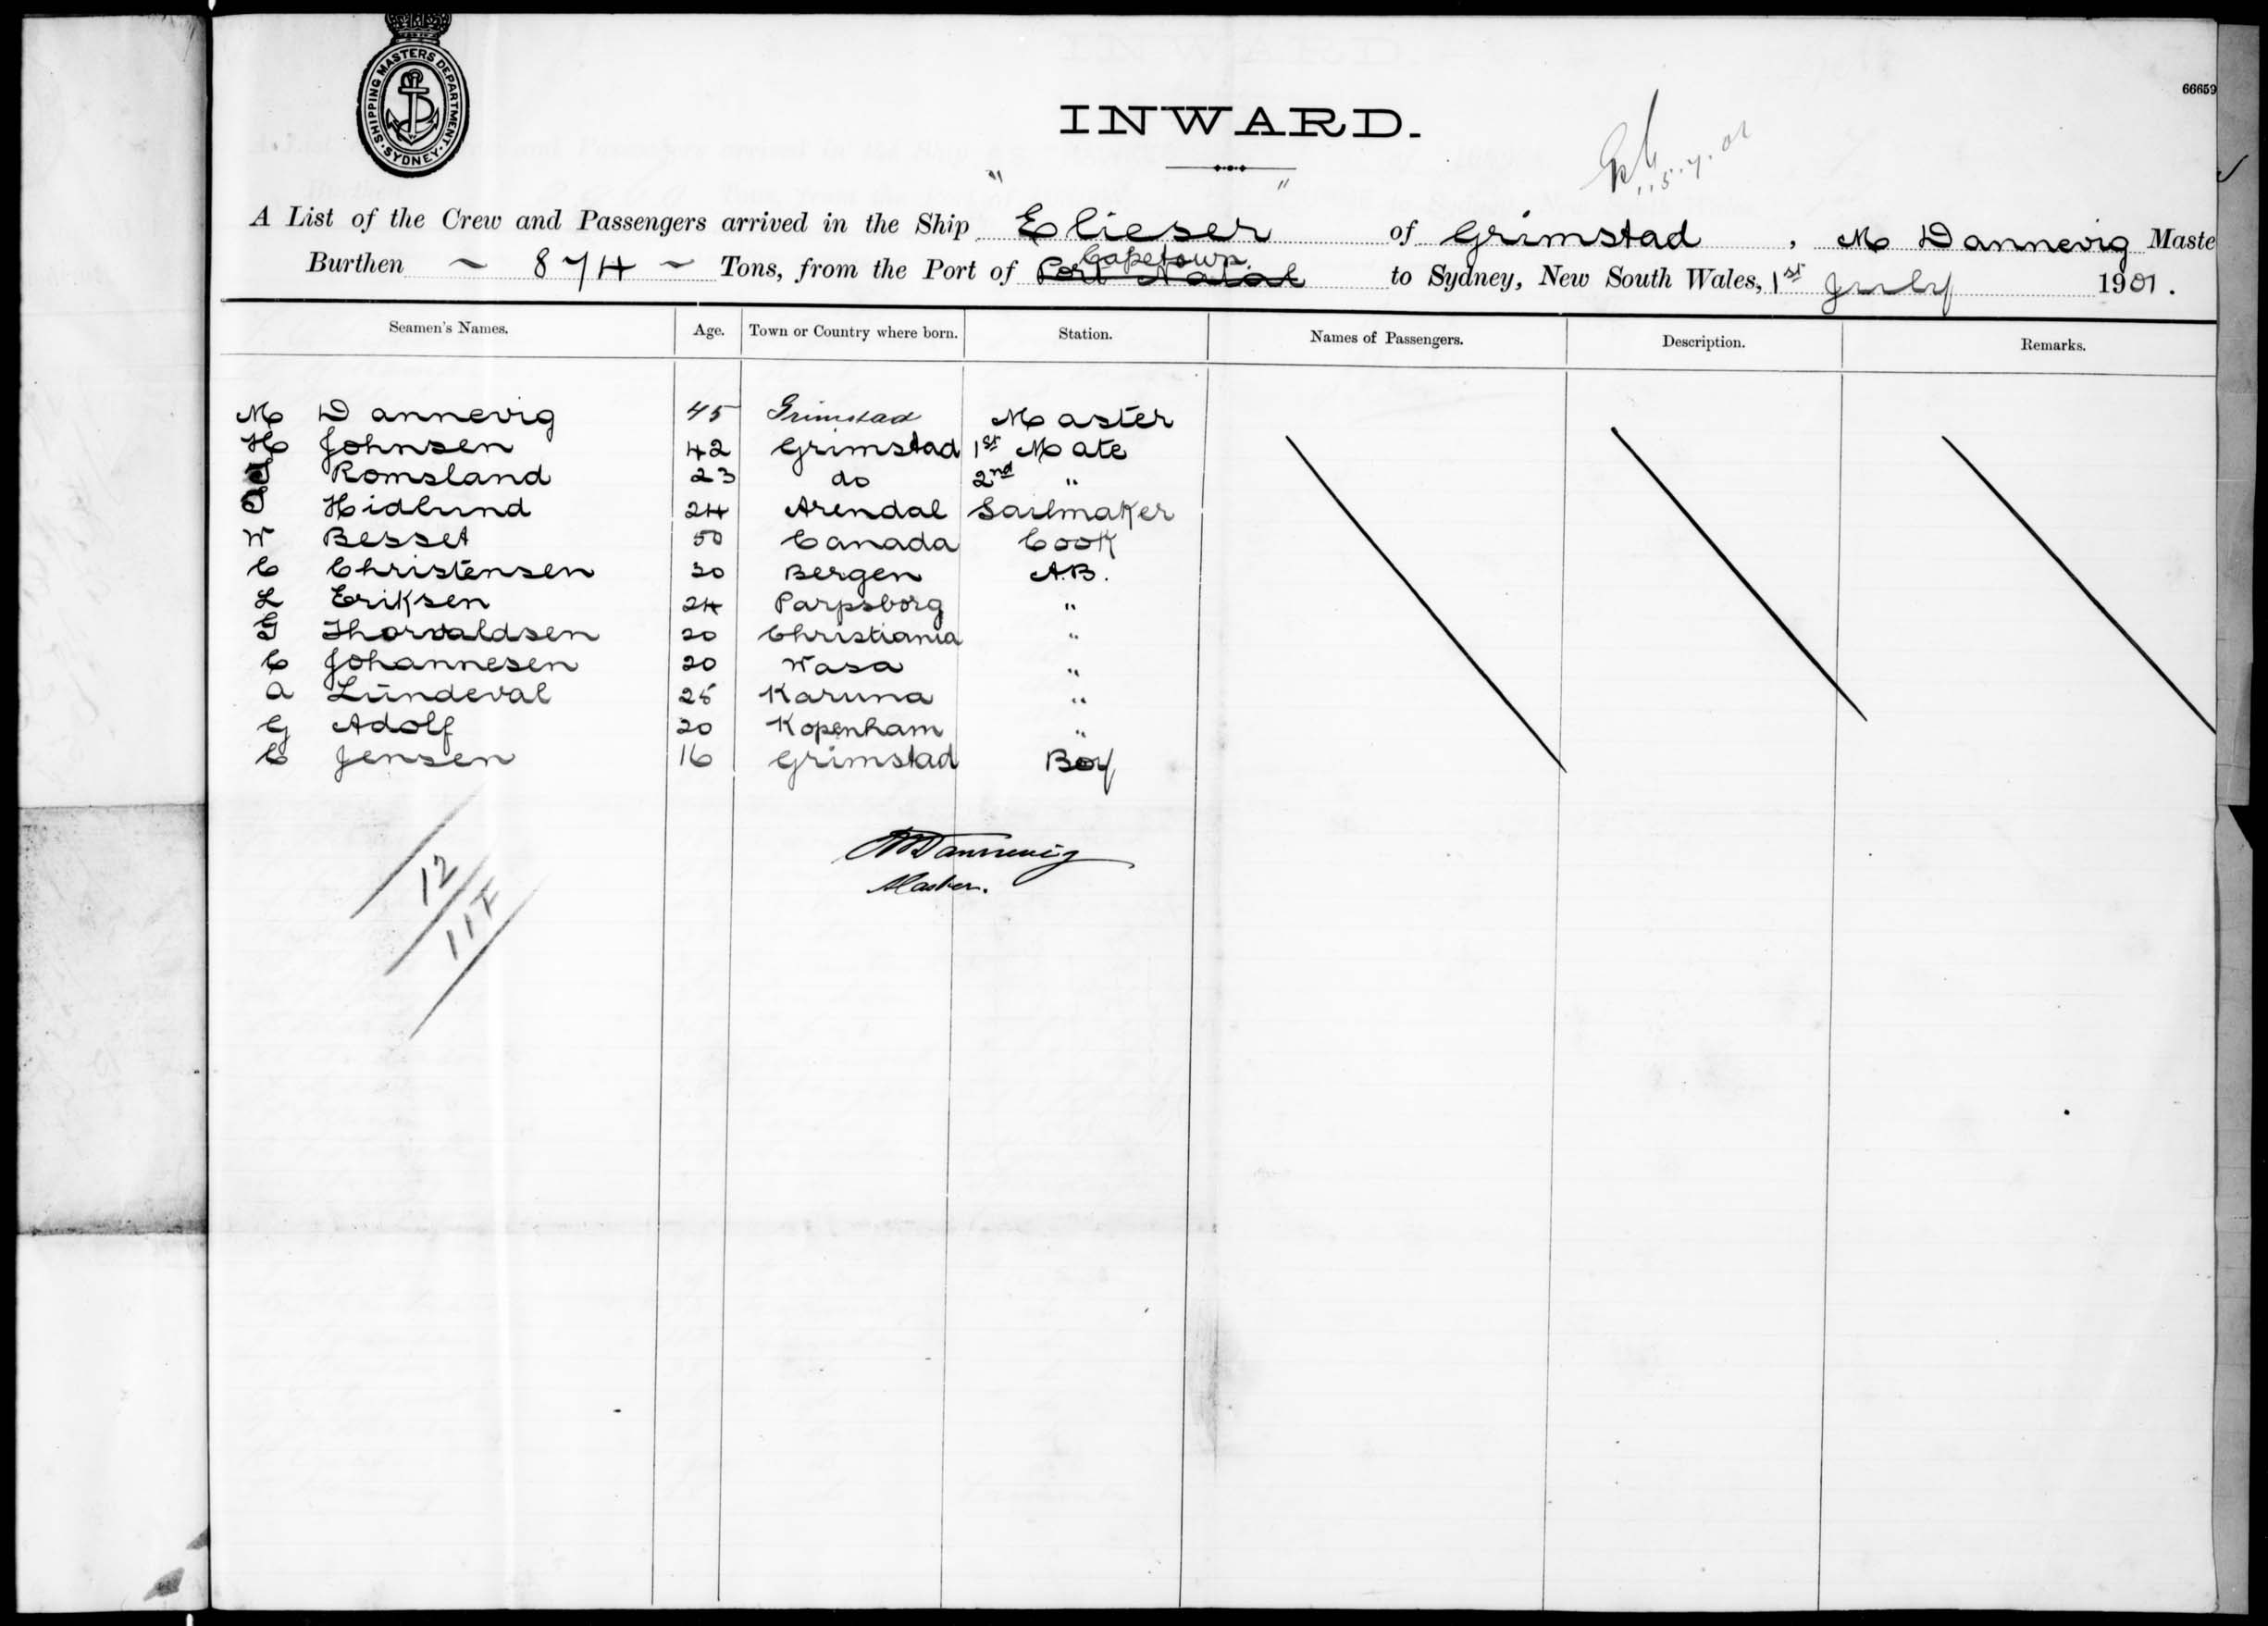 SHIPPING MASTERS DEPARTMENT. SYDNEY
66659
INWARD.
A List of the Crew and Passengers arrived in the Ship "Elieser" of Grimstad, M Dannevig Maste
Burthen ~ 874 ~ Tons, from the Port of Port Natal Capetown. to Sydney, New South Wales, 1st July 1901.
Seamen's Names. Age. Town or Country where born. Station. Names of Passengers. Description. Remarks.
M Dannevig 45 Grimstad Master
H Johnsen 42 Grimstad 1st Mate
Romsland 23 do 2nd "
Hidlund 24 Arendal Sailmaker
W Besset 50 Canada Cook
C Christensen 30 Bergen A.B.
L Eriksen 24 Parpsborg "
G Thorvaldsen 20 Christiania "
C Johannesen 20 Wasa "
A Lundeval 25 Karuna "
G Adolf 20 Kopenham "
C Jensen 16 Grimstad Boy
MDannevig
Master.
12
11F